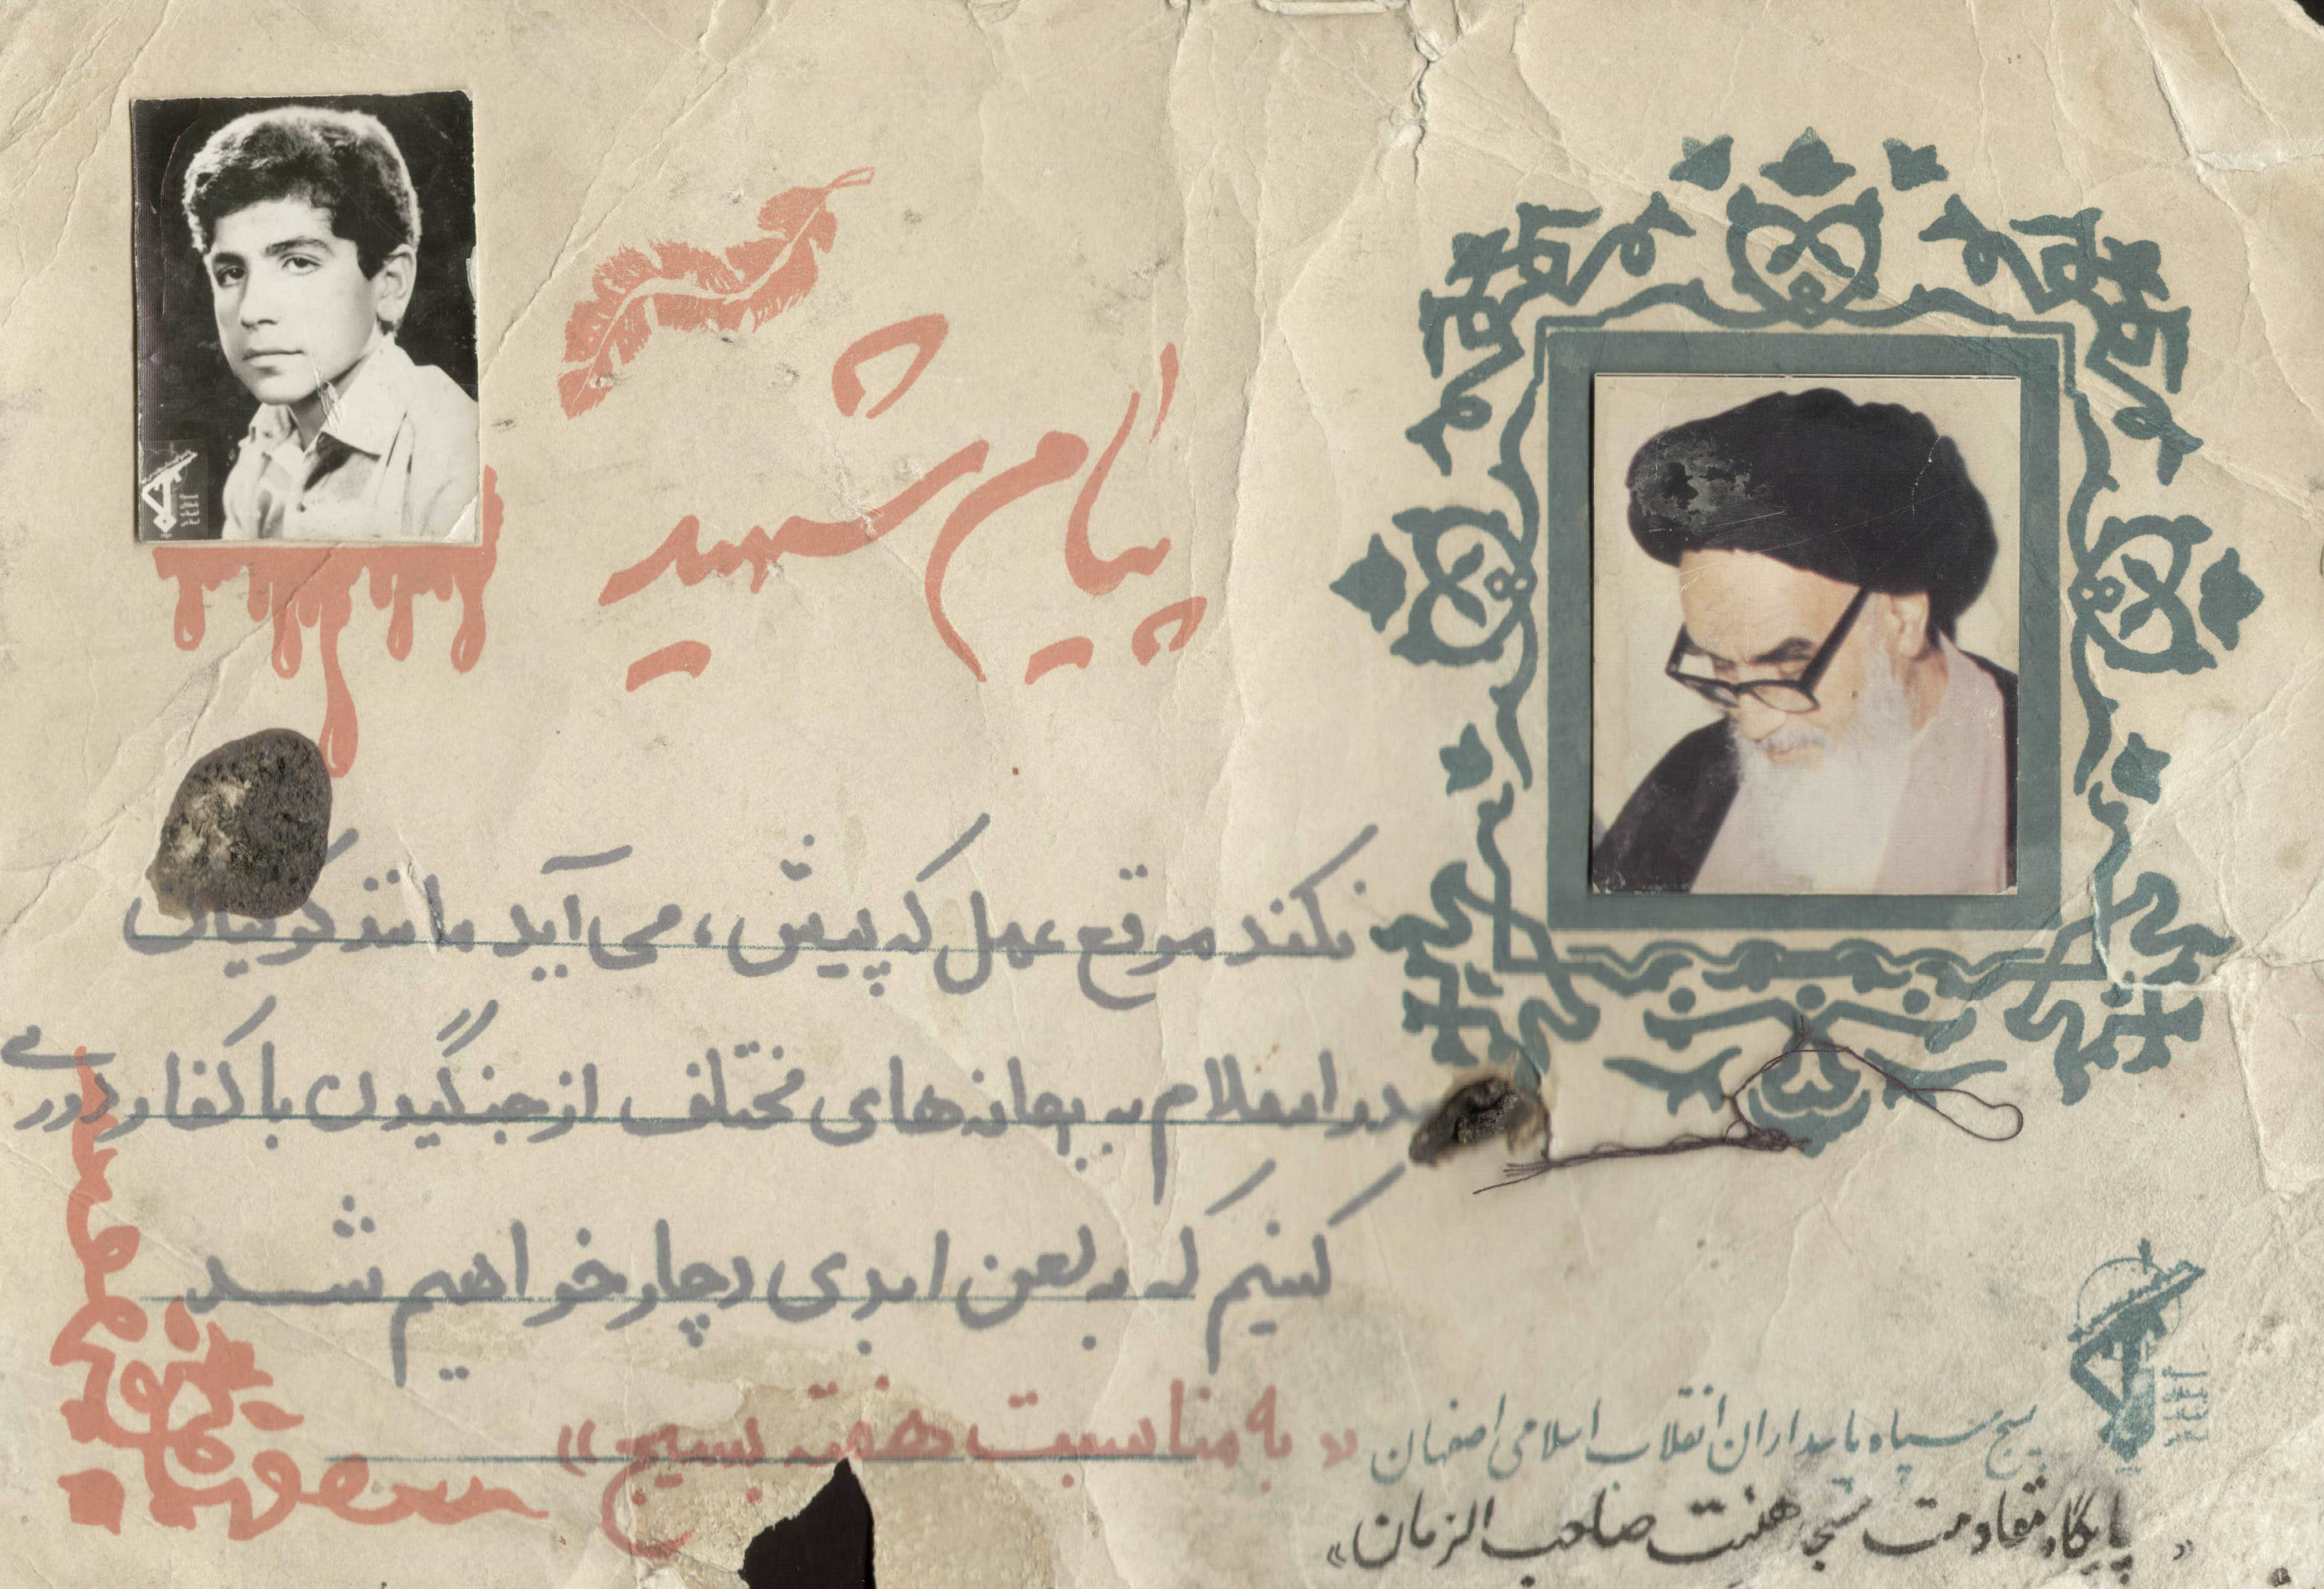 پیام شهید
نکند موقع عمل که پیش، می‌آید مانند کوفیان
صدر اسلام به بهانه‌های مختلف از جنگیدن با کفار دوری
کنیم که به لعن ابدی دچار خواهیم شد
«به مناسبت هفته بسیج»
بسیج سپاه پاسداران انقلاب اسلامی اصفهان
«پایگاه مقاومت مسجد هفت صاحب الزمان»